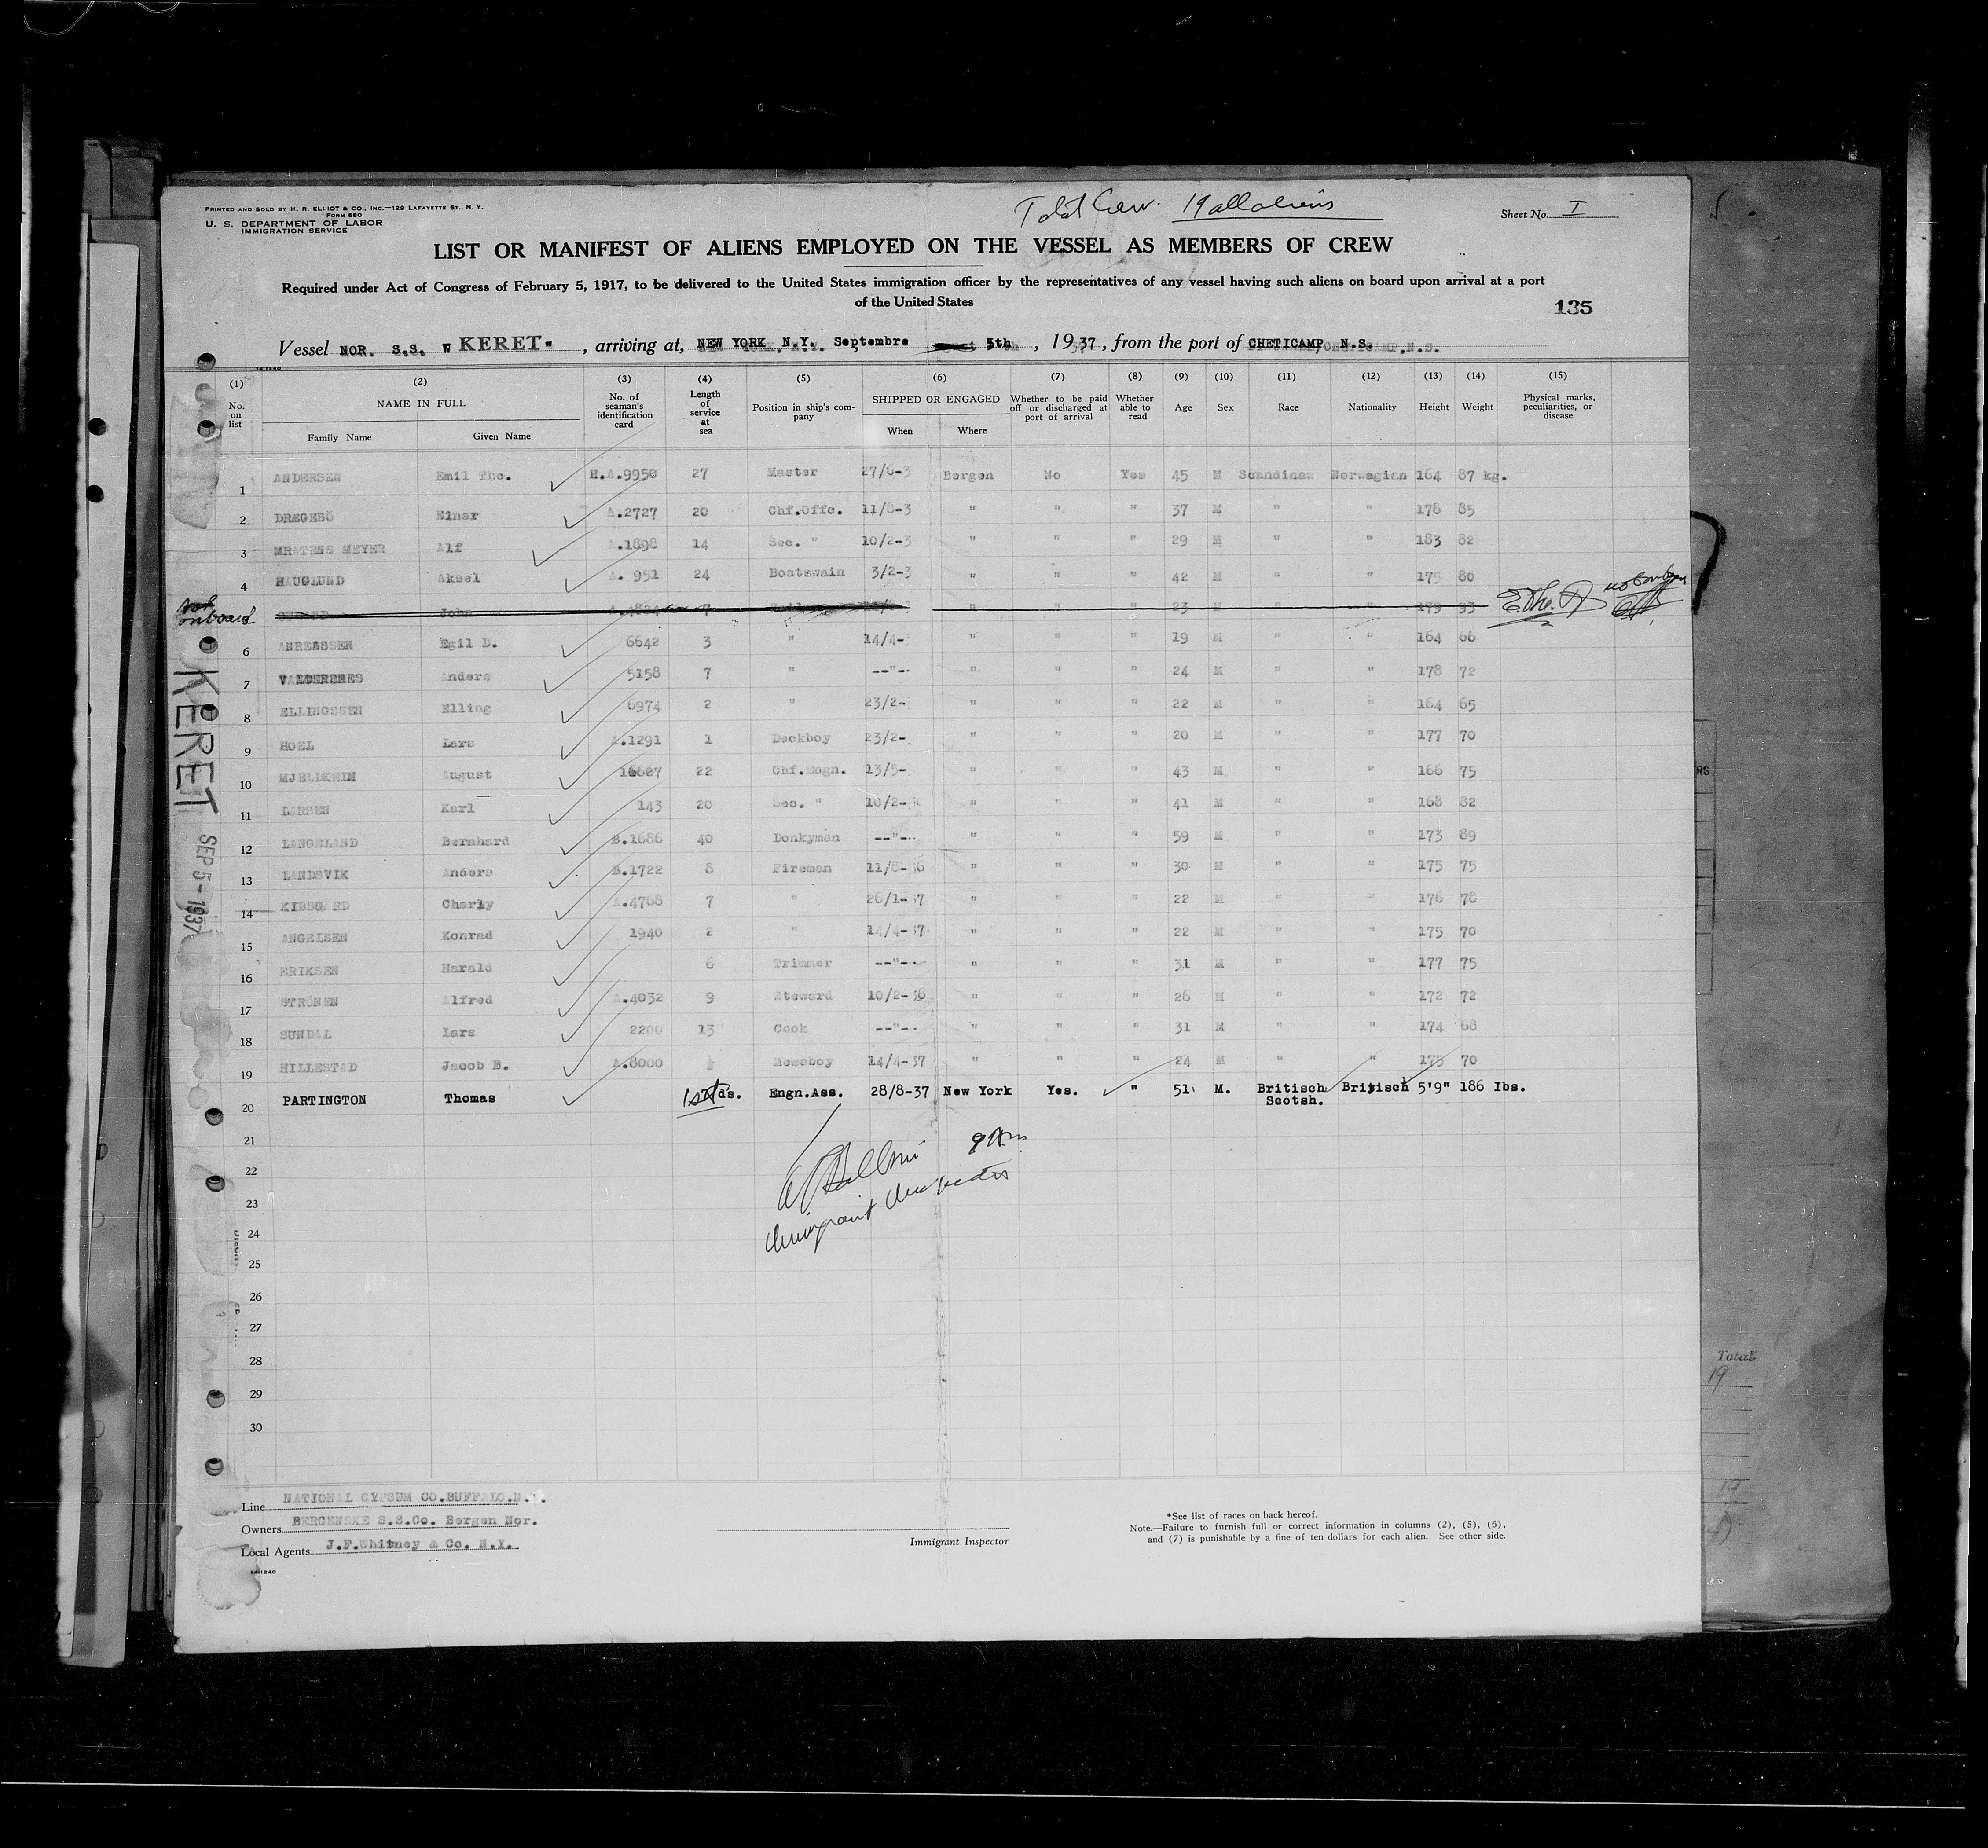 Total Crew. 19 all aliens
PRINTED AND SOLD BY H. R. ELLIOT & CO., INC.—129 LAFAYETTE ST., N. Y.
FORM 680
U. S. DEPARTMENT OF LABOR
IMMIGRATION SERVICE
Sheet No. I
LIST OR MANIFEST OF ALIENS EMPLOYED ON THE VESSEL AS MEMBERS OF CREW
Required under Act of Congress of February 5, 1917, to be delivered to the United States immigration officer by the representatives of any vessel having such aliens on board upon arrival at a port
of the United States
135
Vessel NOR. S.S. " KERET" , arriving at, NEW YORK N.Y. Septembre 5th , 1937, from the port of CHETICAMP N.S.
14-1240
(1) (2) (3) (4) (5) (6) (7) (8) (9) (10) (11) (12) (13) (14) (15)
No. on list NAME IN FULL Family Name Given Name No. of seaman's identification card Length of service at sea Position in ship's company SHIPPED OR ENGAGED When Where Whether to be paid off or discharged at port of arrival Whether able to read Age Sex Race Nationality Height Weight Physical marks, peculiarities, or disease
1 ANDERSEN Emil The. H.A.9950 27 Master 27/6-3 Bergen No Yes 45 M Scandinav Norwegian 164 87 kg.
2 DRÆGEBÖ Einar A.2727 20 Chf.Offc. 11/8-3 " " " 37 M " " 178 85
3 MRATENS MEYER Alf A.1898 14 Sec. " 10/2-3 " " " 29 M " " 183 82
4 HAUGLUND Aksel A. 951 24 Boatswain 3/2-3 " " " 42 M " " 175 80
not onboard John 7 " " " 23 M " " 179 93 E. The. A not onboard
6 ANREASSEN Egil D. 6642 3 " 14/4- " " " 19 M " " 164 66
7 VALDERSNES Anders 5158 7 " --"-. " " " 24 M " " 178 72
8 ELLINGSSEN Elling 6974 2 " 23/2- " " " 22 M " " 164 65
9 HOEL Lars A.1291 1 Deckboy 23/2- " " " 20 M " " 177 70
10 MJELDHEIM August 16627 22 Chf.Engn. 13/5- " " " 43 M " " 166 75
11 LARSEN Karl 143 20 Sec. " 10/2- " " " 41 M " " 168 82
12 LANGELAND Bernhard B.1686 40 Donkyman --"-. " " " 59 M " " 173 89
13 LANDSVIK Anders B.1722 8 Fireman 11/8-36 " " " 30 M " " 175 75
14 KIBSGÅRD Charly A.4768 7 " 26/1-37 " " " 22 M " " 176 78
15 ANGELSEN Konrad 1940 2 " 14/4-37 " " " 22 M " " 175 70
16 ERIKSEN Harald 6 Trimmer --"-. " " " 31 M " " 177 75
17 STRÖNEN Alfred A.4032 9 Steward 10/2-36 " " " 26 M " " 172 72
18 SUNDAL Lars 2200 13 Cook --"-. " " " 31 M " " 174 68
19 HILLESTAD Jacob B. A.8000 ½ Messboy 14/4-37 " " " 24 M " " 175 70
20 PARTINGTON Thomas 1st ds. Engn.Ass. 28/8-37 New York Yes. " 51 M. Britisch Scotsh. Britisch 5'9" 186 Ibs.
21
22
23
24
25
26
27
28
29
30
Immigrant Inspector
KERET
SEP 5 - 1937
Line NATIONAL GYPSUM CO.BUFFALO.N.Y.
Owners BERGENSKE S.S.Co. Bergen Nor.
Local Agents J.F.Whitney & Co. N.Y.
14-1240
Immigrant Inspector
*See list of races on back hereof.
Note.—Failure to furnish full or correct information in columns (2), (5), (6),
and (7) is punishable by a fine of ten dollars for each alien. See other side.
Total
19
19